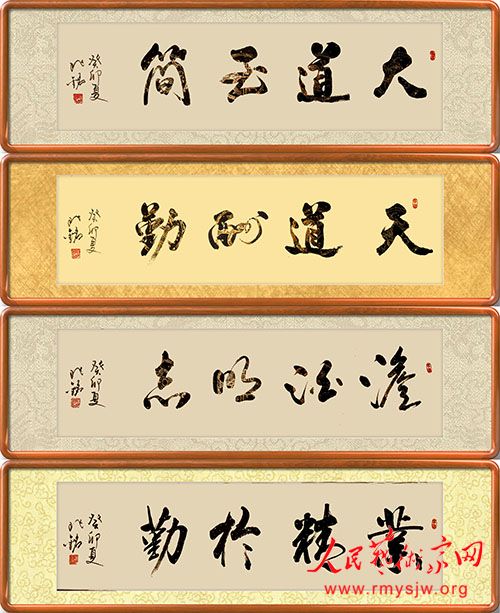 大道至简
癸卯夏
天道酬勤
癸卯夏
澹泊明志
癸卯夏
業精於勤
癸卯夏
人民藝术家网
www.rmysjw.org